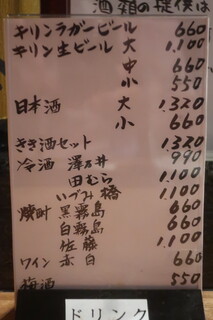 酒類の提供は
キリンラガービール 660
キリン生ビール 大 1,100
中 660
小 550
日本酒 大 1,320
小 660
きき酒セット 1,320
冷酒 澤乃井 990
田むら 1,100
いづみ橋 1,100
焼酎 黒霧島 660
白霧島 660
佐藤 1,100
ワイン 赤白 660
梅酒 550
ドリンク